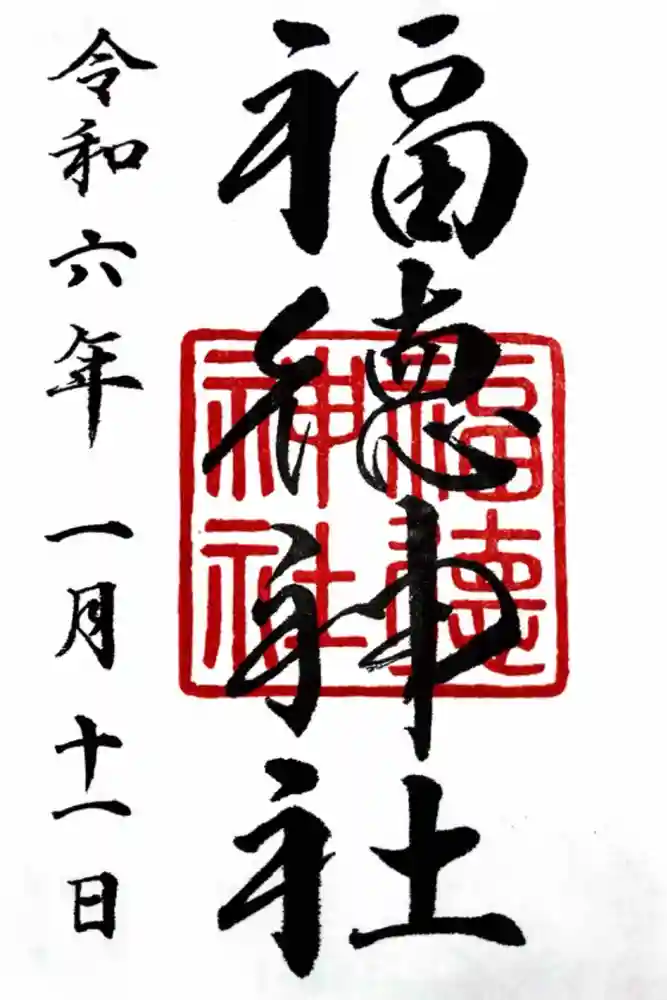 福徳神社
福徳神社
令和六年 一月十一日